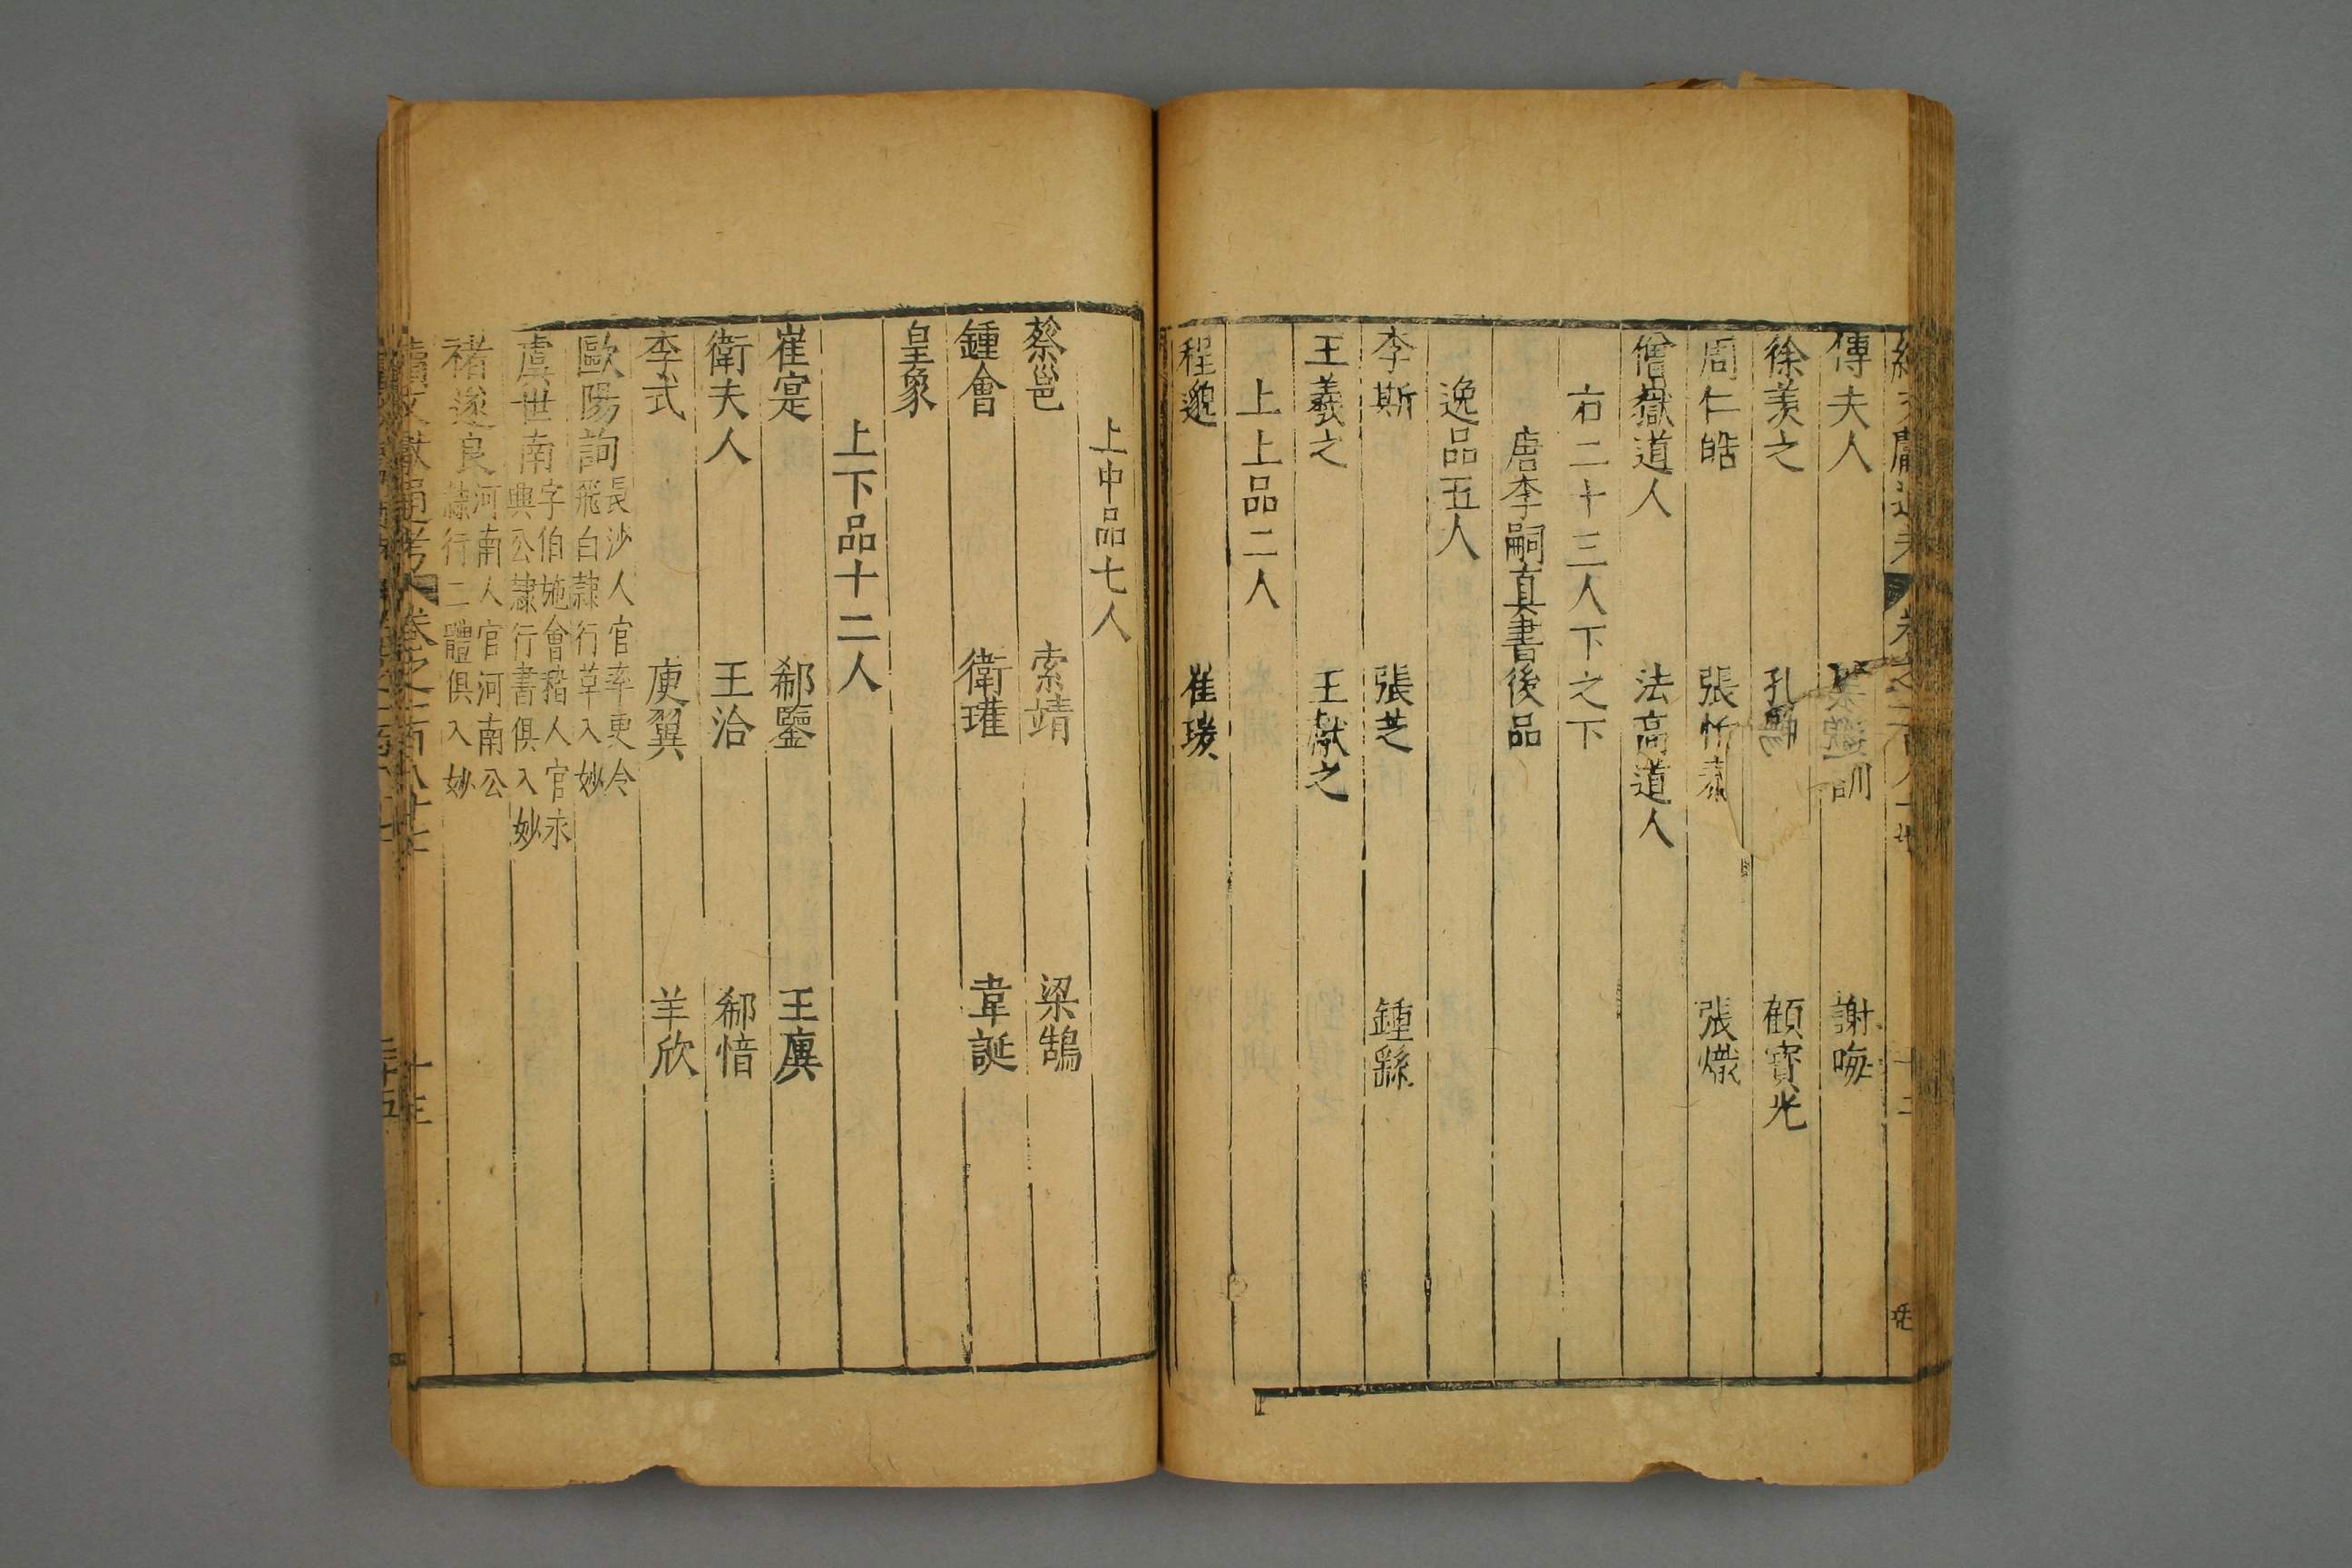 傅夫人 訓 謝晦
徐羡之 孔 顧寶光
周仁皓 張 張熾
僧嶽道人 法高道人
右二十三人下之下
唐李嗣真書後品
逸品五人
李斯 張芝 鍾繇
王羲之 王獻之
上上品二人
程邈 崔瑗
上中品七人
蔡邕 索靖 梁鵠
鍾會 衛瓘 韋誕
皇象
上下品十二人
崔寔 郗鑒 王廙
衛夫人 王洽 郗愔
李式 庾翼 羊欣
歐陽詢 長沙人官率更令飛白隷行草入妙
虞世南 字伯施會稽人官永興公隷行書俱入妙
褚遂良 河南人官河南公隷行二體俱入妙
續文獻通考 卷之一百八十七 十三